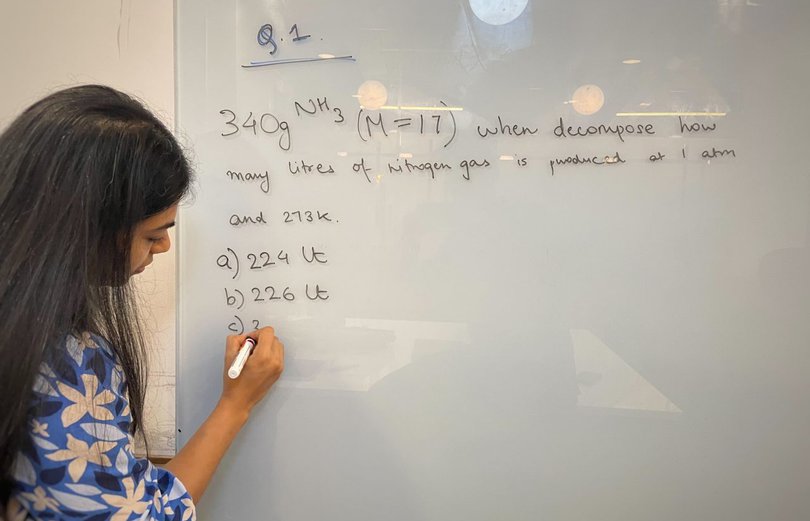 Q.1.
340g NH3 (M=17) when decompose how
many litres of nitrogen gas is produced at 1 atm
and 273k.
a) 224 lt
b) 226 lt
c) 2